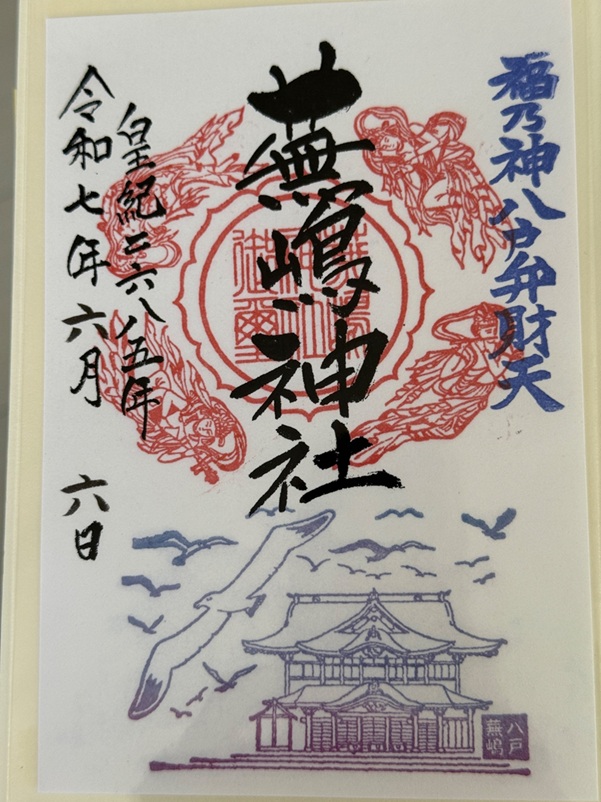 福乃神八戸弁財天
蕪嶋神社
皇紀二六八五年
令和七年六月 六日
八戸
蕪嶋